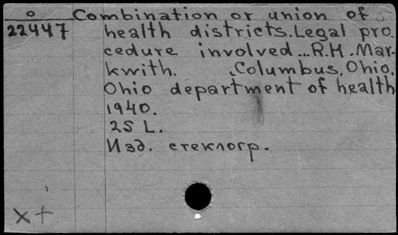 Combination or union of
22447 health districts. Legal pro
cedure involved... R.H. Mar-
kwith. Columbus, Ohio,
Ohio department of health
1940.
25 L.
Изд. стеклогр.
X+